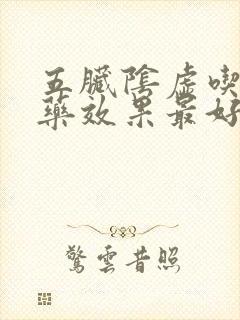 五臟陰虛喫
藥效果最好
驚雲昔照